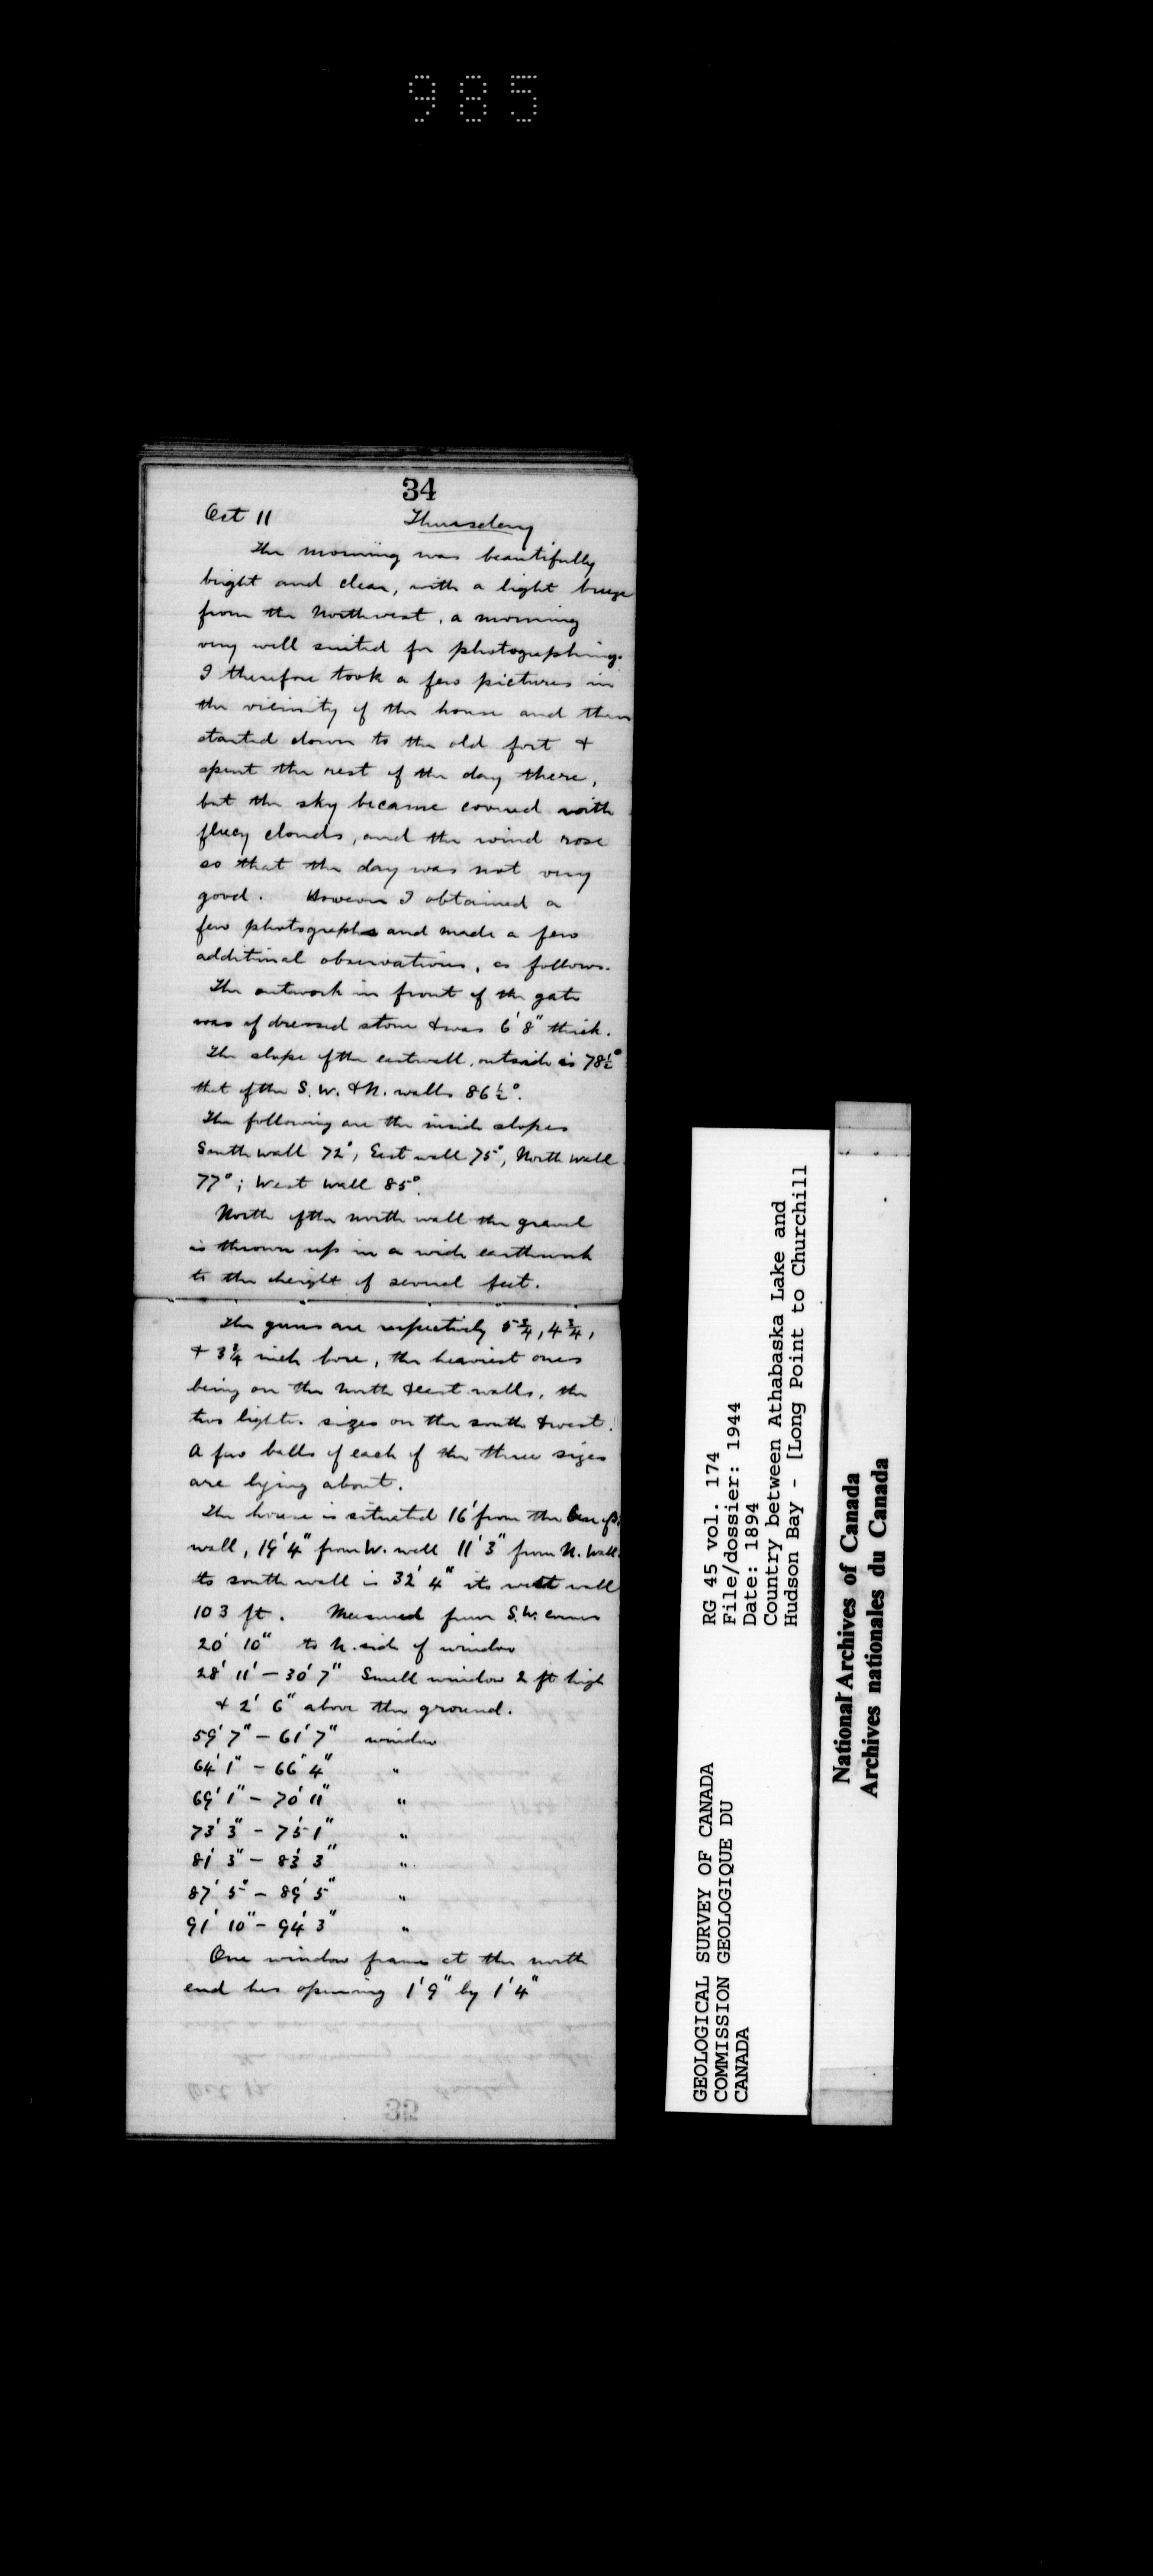 985
34
Oct 11 Thursday
The morning was beautifully
bright and clear, with a light breeze
from the Northwest, a morning
very well suited for photographing.
I therefore took a few pictures in
the vicinity of the house and then
started down to the old fort &
spent the rest of the day there,
but the sky became covered with
fleecy clouds, and the wind rose
so that the day was not very
good. However I obtained a
few photographs and made a few
additional observations, as follows.
The outwork in front of the gate
was of dressed stone & was 6' 8" thick.
The slope of the east wall, outside is 78½°
that of the S. W. & N. walls 86½°.
The following are the inside slopes
South wall 72°, East wall 75°, North wall
77°; West wall 85°.
North of the north wall the gravel
is thrown up in a wide earthwork
to the height of several feet.
The guns are respectively 5¾, 4¾,
& 3¾ inch bore, the heaviest ones
being on the north & east walls, the
two lighter sizes on the south & west.
A few balls of each of the three sizes
are lying about.
The house is situated 16' from the
wall, 19' 4" from W. wall 11' 3" from N. wall.
Its south wall is 32' 4" its west wall
103 ft. Measured from S.W. corner
20' 10" to N. side of window
28' 11' - 30' 7" Small window 2 ft high
& 2' 6" above the ground.
59' 7" - 61' 7" window
64' 1" - 66' 4" "
69' 1" - 70' 11" "
73' 3" - 75' 1" "
81' 3" - 83' 3" "
87' 5" - 89' 5" "
91' 10" - 94' 3" "
One window frame at the north
end has opening 1' 9" by 1' 4"
GEOLOGICAL SURVEY OF CANADA
COMMISSION GEOLOGIQUE DU
CANADA
RG 45 vol. 174
File/dossier: 1944
Date: 1894
Country between Athabaska Lake and
Hudson Bay - [Long Point to Churchill
National Archives of Canada
Archives nationales du Canada